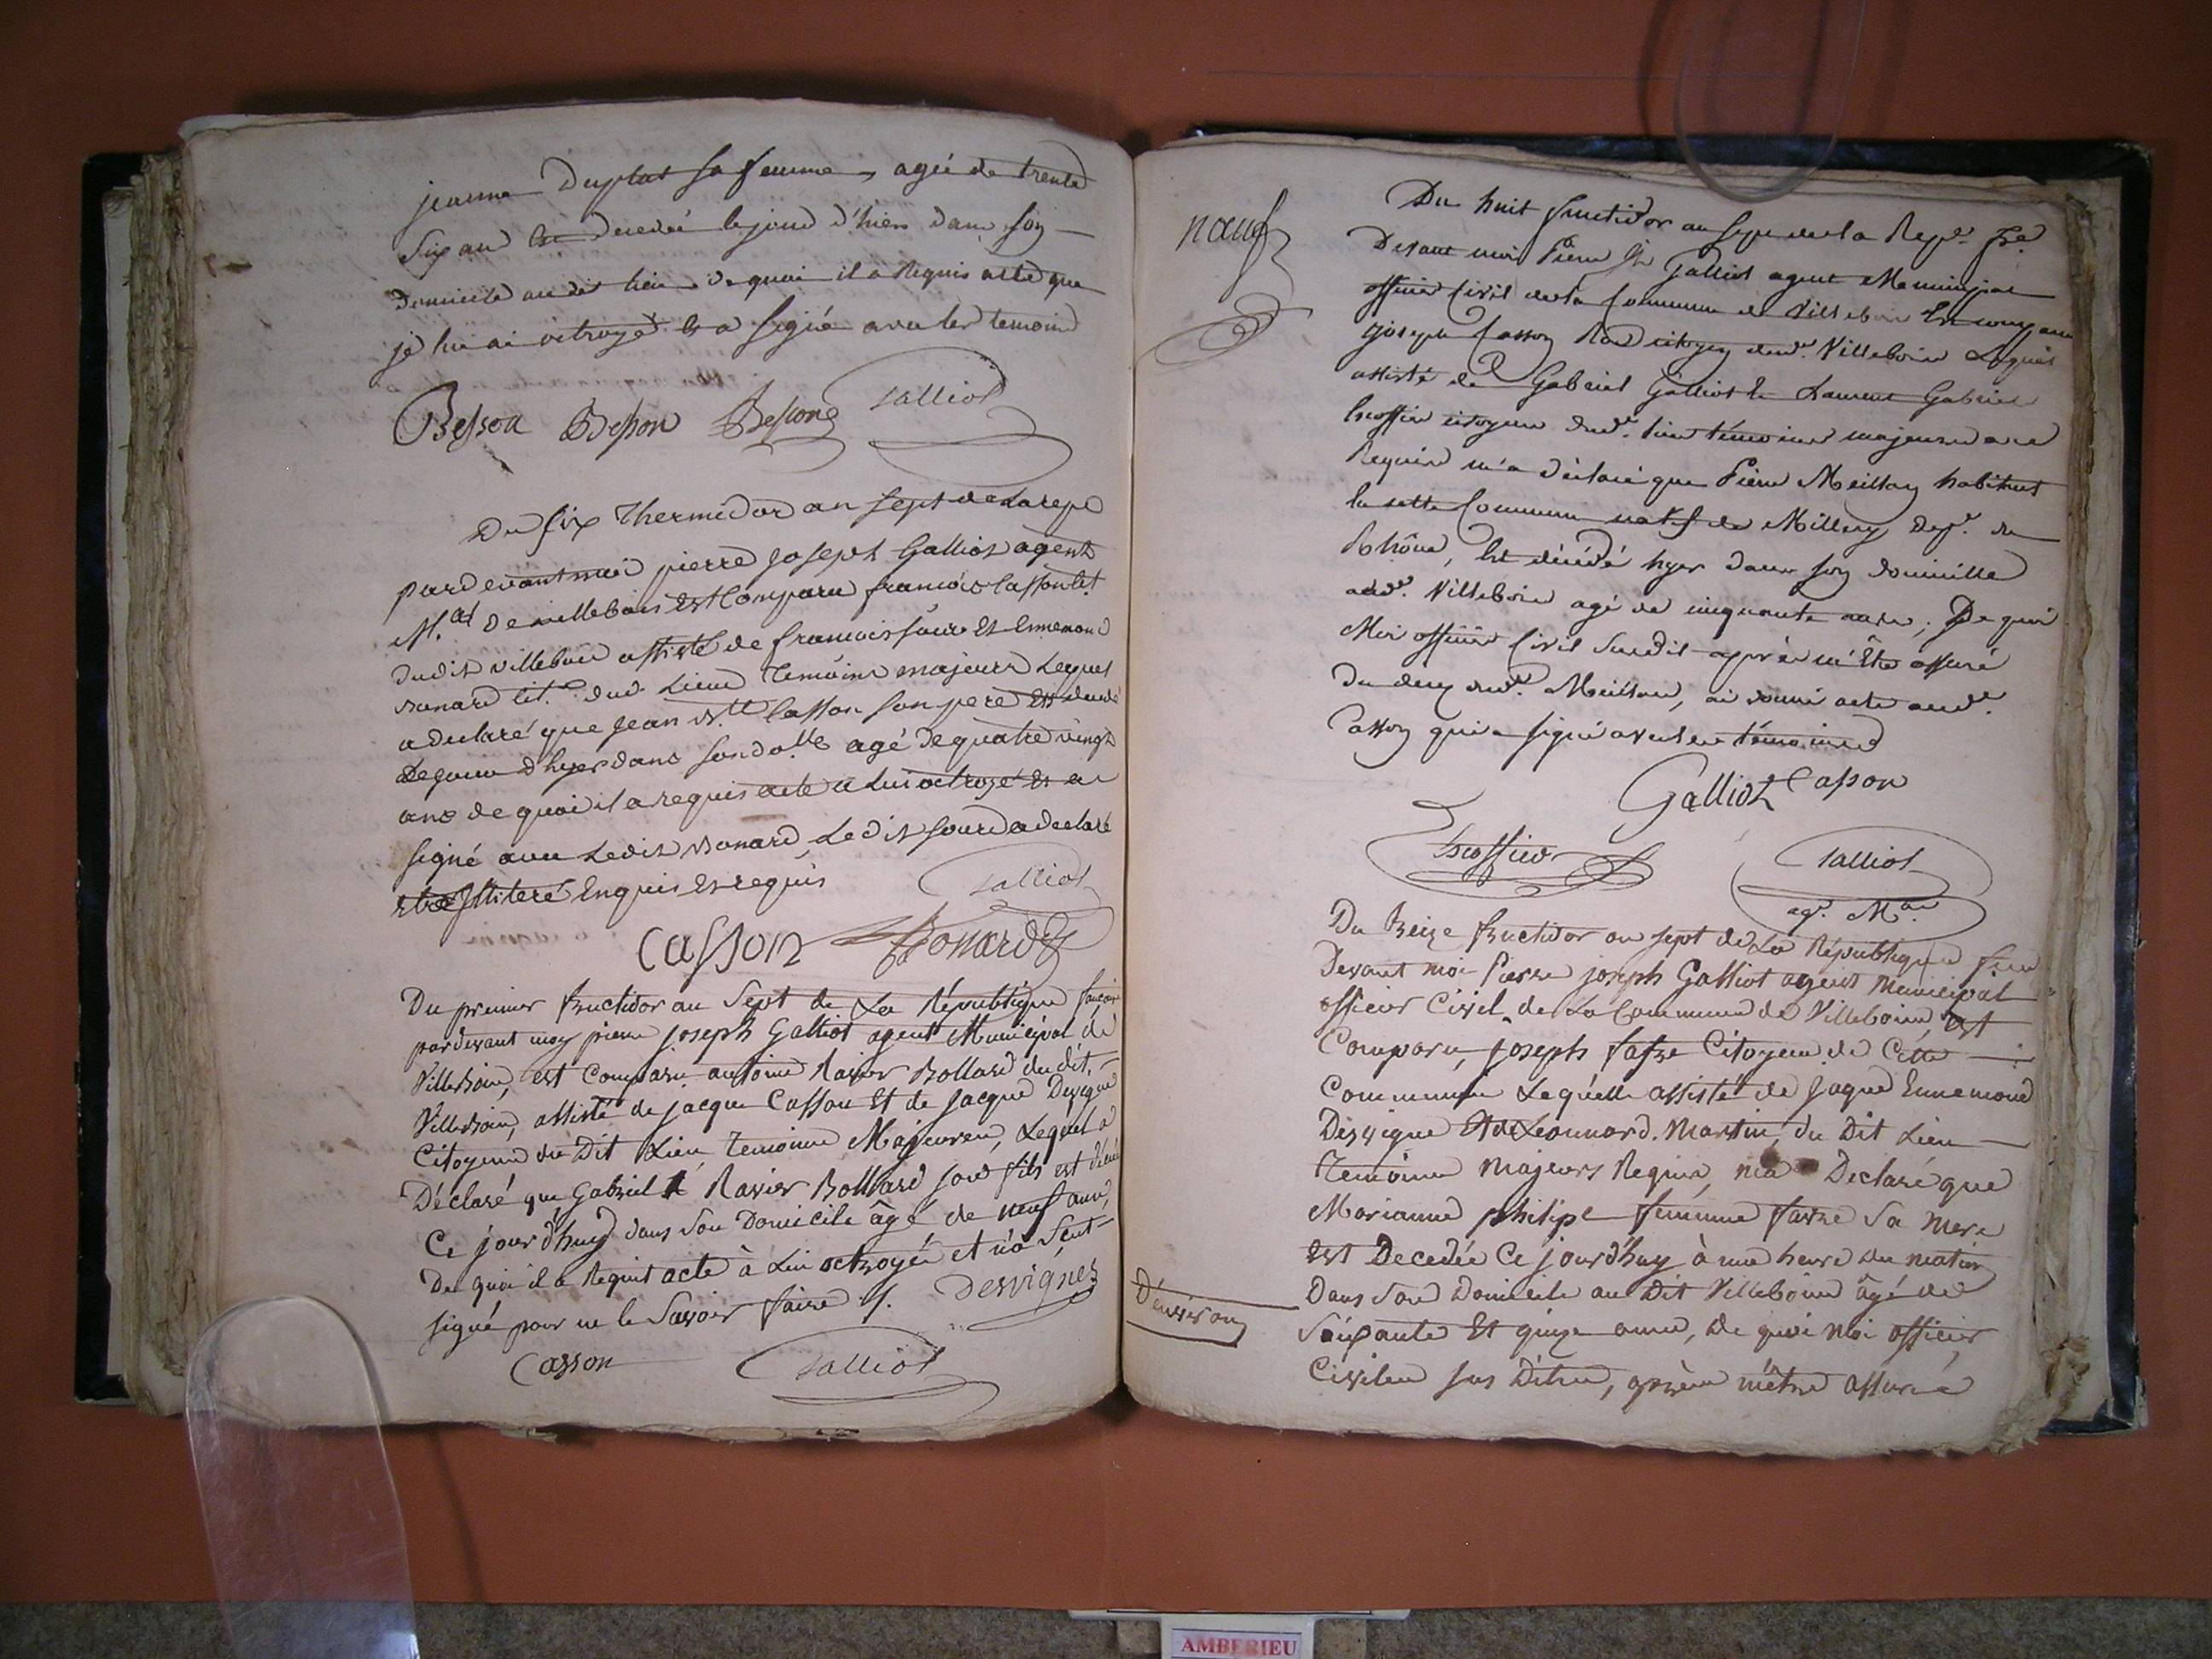 jeanne Duplat sa femme, agée de trente
Six ans Est decedée le jour d'hier dans son
domicile au dit lieu de quoi il a Requis acte que
je lui ai octroyé et a signé avec les temoins
Besson Besson Bessong Galliot
Du Six Thermidor an sept de La rep.e
pardevant moi pierre Joseph Galliot agent
M.al De villebois est Comparu francois Casson Cit.
dudit villebois assisté de francois et Ennemond
Bonard Cit. dud. Lieux Temoins majeurs Lequel
a declaré que Jean B.te Casson son pere Est decedé
Le jour d'hyer dans son do.lle agé de quatre vingt
ans de quoi il a requis acte a Lui octroyé Et a
signé avec Ledit Bonard, Le dit a declaré
illiteré Enquis Et requis
Galliot
Casson Bonard
Du premier fructidor an Sept de La République
pardevant moy pierre joseph Galliot agent Municipal de
Villeboix, est Comparu antoine Ravier Bollard du dit
Villeboix, assisté de jacque Casson Et de jacque Desvigne
Citoyens du Dit Lieu, Temoins Majeures, Lequel a
Déclaré que Gabriel Ravier Bollard son fils est décédé
Ce jourd'huy dans son Domicile âgé de neuf ans,
De quoi il a Requit acte à Lui octroyée et n'a Seut
signé pour ne le Savoir faire /. Desvignes
Casson Galliot
nœuf
Du huit fructidor an sept de la Rep.e fse
Devant moi Pierre Jh Galliot agent Municipal
officier Civil de la Commune de Villebois Est comparu
joseph Casson citoyen dud.t Villebois Lequel
assisté de Gabriel Galliot & Laurent Gabriel
Trossier citoyens dud.t lieu témoins majeurs a ce
Requis m'a déclaré que Pierre Meillan habitant
En cette Commune natif de Millery Dep.t du
Rhône, Est décédé hyer dans son domicille
aud.t Villebois agé de cinquante ans; De quoi
Moi officier Civil Susdit après m'être assuré
du deces dud.t Meillan, ai donné acte aud.t
Casson qui a signé avec les témoins
Galliot Casson
Trossier Galliot
ag.t M.al
Du Treize fructidor an sept de La République
Devant moi Pierre joseph Galliot agent Municipal
officier Civil de La Commune de Villebois, est
Comparu, joseph favre Citoyen de Cette
Commune Lequelle assisté de jaque Ennemond
Desvigne & de Leonnard Martin, du Dit Lieu
Temoins Majeurs Requis, ma Declaré que
Marianne philipe femme favre Sa Mere
Est Decedée Ce jourd'huy à une heure du matin
Dans Son Domicile au Dit Villebois âgé de
D'environ
Soixante Et quinze annee, de quoi Moi officier
Civile sus Dit, après m'être assuré